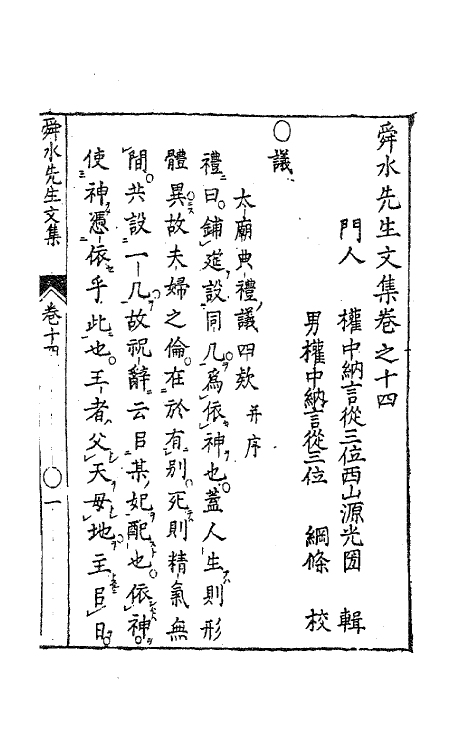 舜水先生文集卷之十四
門人 權中納言從三位西山源光圀 輯
男權中納言從三位 綱條 校
○議
太廟典禮議四欵 并序
禮曰鋪筵設同几爲依神也蓋人生則形
體異故夫婦之倫在於有別死則精氣無
間共設一几故祝辭云以某妃配也依神
使神憑依乎此也王者父天母地主臣日
舜水先生文集 卷十四 ○一